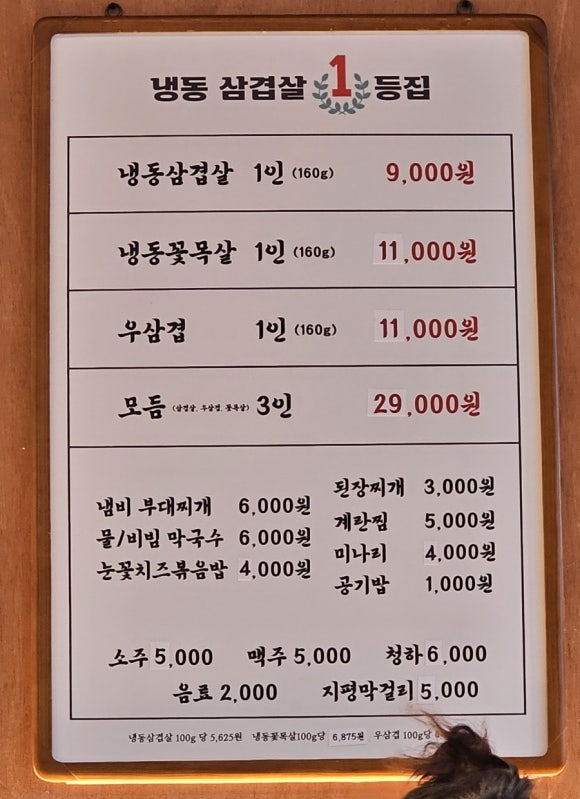 냉동 삼겹살 1등집
냉동삼겹살 1인 (160g) 9,000원
냉동꽃목살 1인 (160g) 11,000원
우삼겹 1인 (160g) 11,000원
모듬 (삼겹살, 우삼겹, 꽃목살) 3인 29,000원
냄비 부대찌개 6,000원
물/비빔 막국수 6,000원
눈꽃치즈볶음밥 4,000원
된장찌개 3,000원
계란찜 5,000원
미나리 4,000원
공기밥 1,000원
소주 5,000 맥주 5,000 청하 6,000
음료 2,000 지평막걸리 5,000
냉동삼겹살 100g 당 5,625원 냉동꽃목살100g당 6,875원 우삼겹 100g당